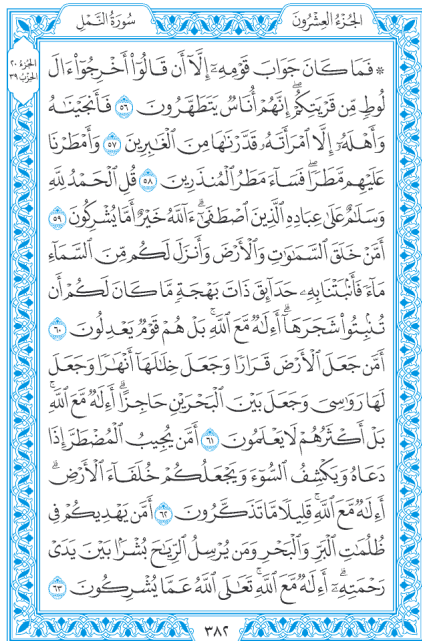 الجُزْءُ العِشْرُونَ
سُورَةُ النَّمْلِ
الجزء ٢٠
الحزب ٣٩
۞ فَمَا كَانَ جَوَابَ قَوْمِهِۦٓ إِلَّآ أَن قَالُوٓا۟ أَخْرِجُوٓا۟ ءَالَ
لُوطٍ مِّن قَرْيَتِكُمْ ۖ إِنَّهُمْ أُنَاسٌ يَتَطَهَّرُونَ ٥٦ فَأَنجَيْنَٰهُ
وَأَهْلَهُۥٓ إِلَّا ٱمْرَأَتَهُۥ قَدَّرْنَٰهَا مِنَ ٱلْغَٰبِرِينَ ٥٧ وَأَمْطَرْنَا
عَلَيْهِم مَّطَرًا ۖ فَسَآءَ مَطَرُ ٱلْمُنذَرِينَ ٥٨ قُلِ ٱلْحَمْدُ لِلَّهِ
وَسَلَٰمٌ عَلَىٰ عِبَادِهِ ٱلَّذِينَ ٱصْطَفَىٰٓ ۗ ءَآللَّهُ خَيْرٌ أَمَّا يُشْرِكُونَ ٥٩
أَمَّنْ خَلَقَ ٱلسَّمَٰوَٰتِ وَٱلْأَرْضَ وَأَنزَلَ لَكُم مِّنَ ٱلسَّمَآءِ
مَآءً فَأَنۢبَتْنَا بِهِۦ حَدَآئِقَ ذَاتَ بَهْجَةٍ مَّا كَانَ لَكُمْ أَن
تُنۢبِتُوا۟ شَجَرَهَآ ۗ أَءِلَٰهٌ مَّعَ ٱللَّهِ ۚ بَلْ هُمْ قَوْمٌ يَعْدِلُونَ ٦٠
أَمَّن جَعَلَ ٱلْأَرْضَ قَرَارًا وَجَعَلَ خِلَٰلَهَآ أَنْهَٰرًا وَجَعَلَ
لَهَا رَوَٰسِىَ وَجَعَلَ بَيْنَ ٱلْبَحْرَيْنِ حَاجِزًا ۗ أَءِلَٰهٌ مَّعَ ٱللَّهِ ۚ
بَلْ أَكْثَرُهُمْ لَا يَعْلَمُونَ ٦١ أَمَّن يُجِيبُ ٱلْمُضْطَرَّ إِذَا
دَعَاهُ وَيَكْشِفُ ٱلسُّوٓءَ وَيَجْعَلُكُمْ خُلَفَآءَ ٱلْأَرْضِ ۗ
أَءِلَٰهٌ مَّعَ ٱللَّهِ ۚ قَلِيلًا مَّا تَذَكَّرُونَ ٦٢ أَمَّن يَهْدِيكُمْ فِى
ظُلُمَٰتِ ٱلْبَرِّ وَٱلْبَحْرِ وَمَن يُرْسِلُ ٱلرِّيَٰحَ بُشْرًۢا بَيْنَ يَدَىْ
رَحْمَتِهِۦٓ ۗ أَءِلَٰهٌ مَّعَ ٱللَّهِ ۚ تَعَٰلَى ٱللَّهُ عَمَّا يُشْرِكُونَ ٦٣
٣٨٢